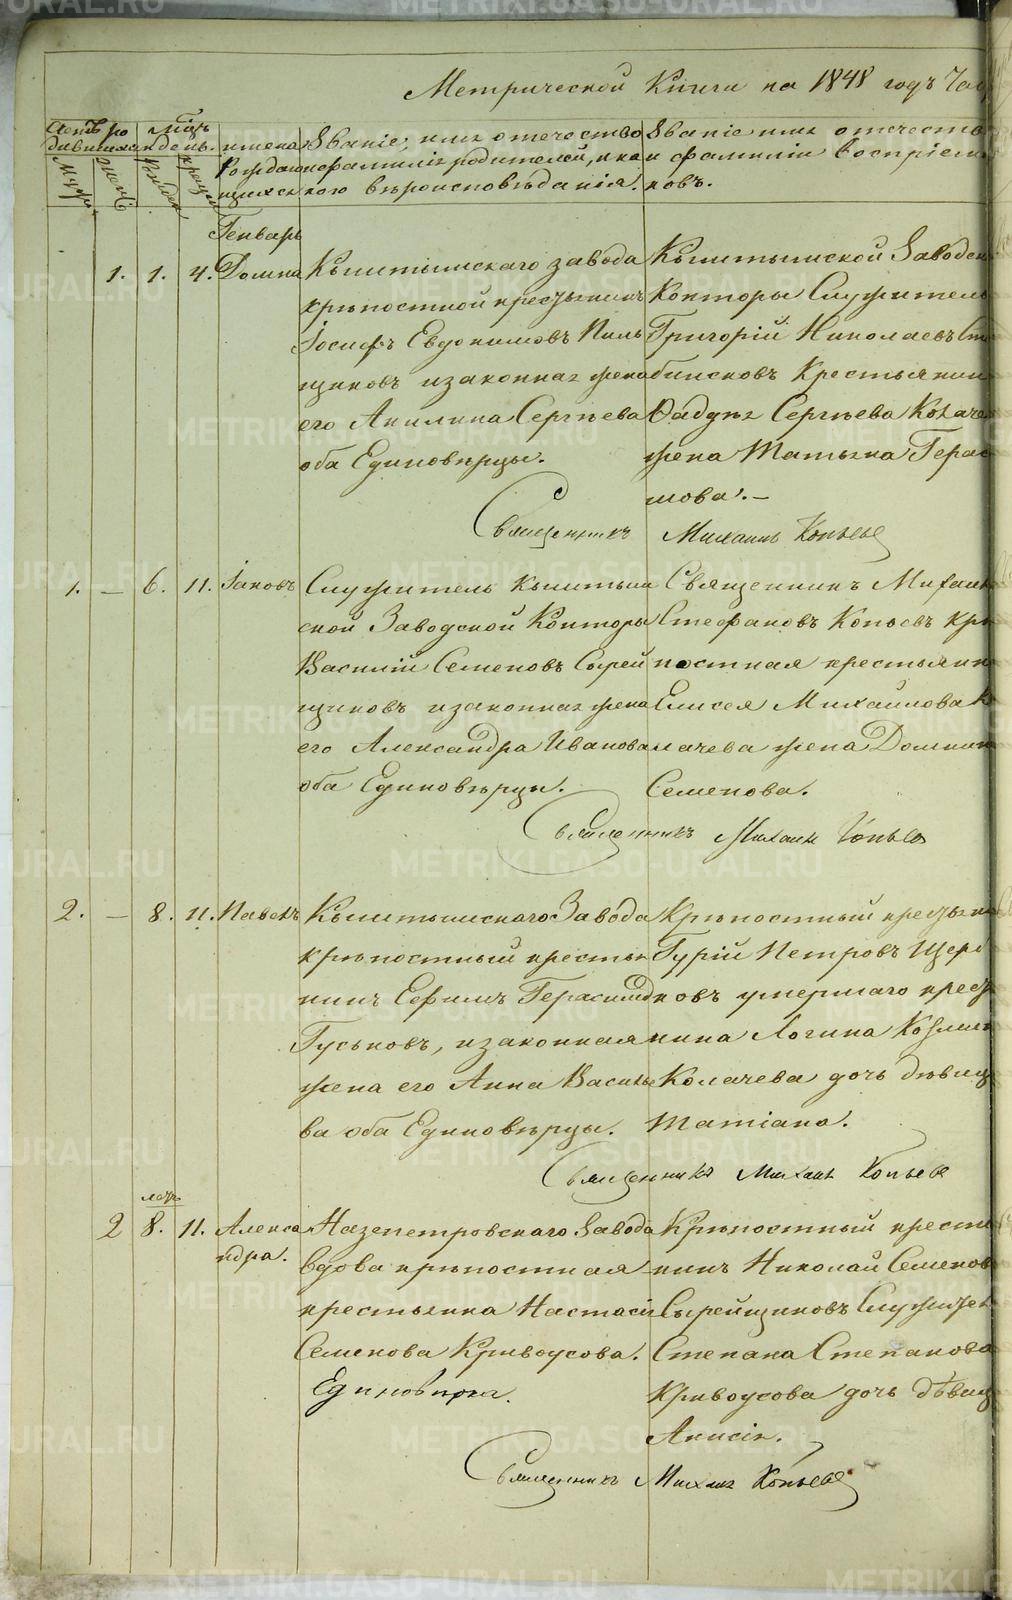 Метрической Книги на 1848 годъ Час
Счетъ ро дившихся
Мужес. Женс.
Мѣсяцъ и день.
Рожден. Крещен.
имена Рождающихся
Званіе, имя отечество и фамилія родителей, и какого вѣроисповѣданія.
Званіе имя отечество и фамиліи воспріемниковъ.
Генварь
1. 1. 4. Домна
Кыштымскаго завода
крѣпостной крестьянинъ
Іосифъ Евдокимовъ Пиль
щиковъ и законная жена
его Акилина Сергѣева
оба Единовѣрцы.
Кыштымской Заводск
Конторы Служитель
Григорій Николаевъ
Крестьянин
Фадѣя Сергѣева
жена Татьяна Герас
мова.
Священникъ Михаилъ Копьевъ
1. — 6. 11. Іаковъ
Служитель Кыштым
ской Заводской Конторы
Василій Семеновъ Сырей
щиковъ и законная жена
его Александра Иванова
оба Единовѣрцы.
Священникъ Михаилъ
Стефановъ Копьевъ кре
постная крестьянин
Елисея Михайлова К
лачева жена Домник
Семенова.
Священникъ Михаилъ Копьев
2. — 8. 11. Павелъ
Кыштымскаго Завода
крѣпостный крестья
нинъ Ефимъ Герасимов
Гуськовъ, и законная
жена его Анна Василье
ва оба Единовѣрцы.
Крѣпостный крестьян
Гурій Петровъ Щерб
ковъ умершаго крест
нина Логина Козмин
Колачева дочь дѣвиц
Татіана.
Священникъ Михаилъ Копьевъ
2 8. 11. Алекса
ндра.
Назепетровскаго Завода
вдова крѣпостная
крестьянка Настасія
Семенова Кривоусова.
Единовѣрка.
Крѣпостный крестья
нинъ Николай Семенов
Сырейщиковъ Служител
Степана Степанова
Кривоусова дочь дѣвиц
Анисія.
Священникъ Михаилъ Копьевъ
METRIKI.GASO-URAL.RU